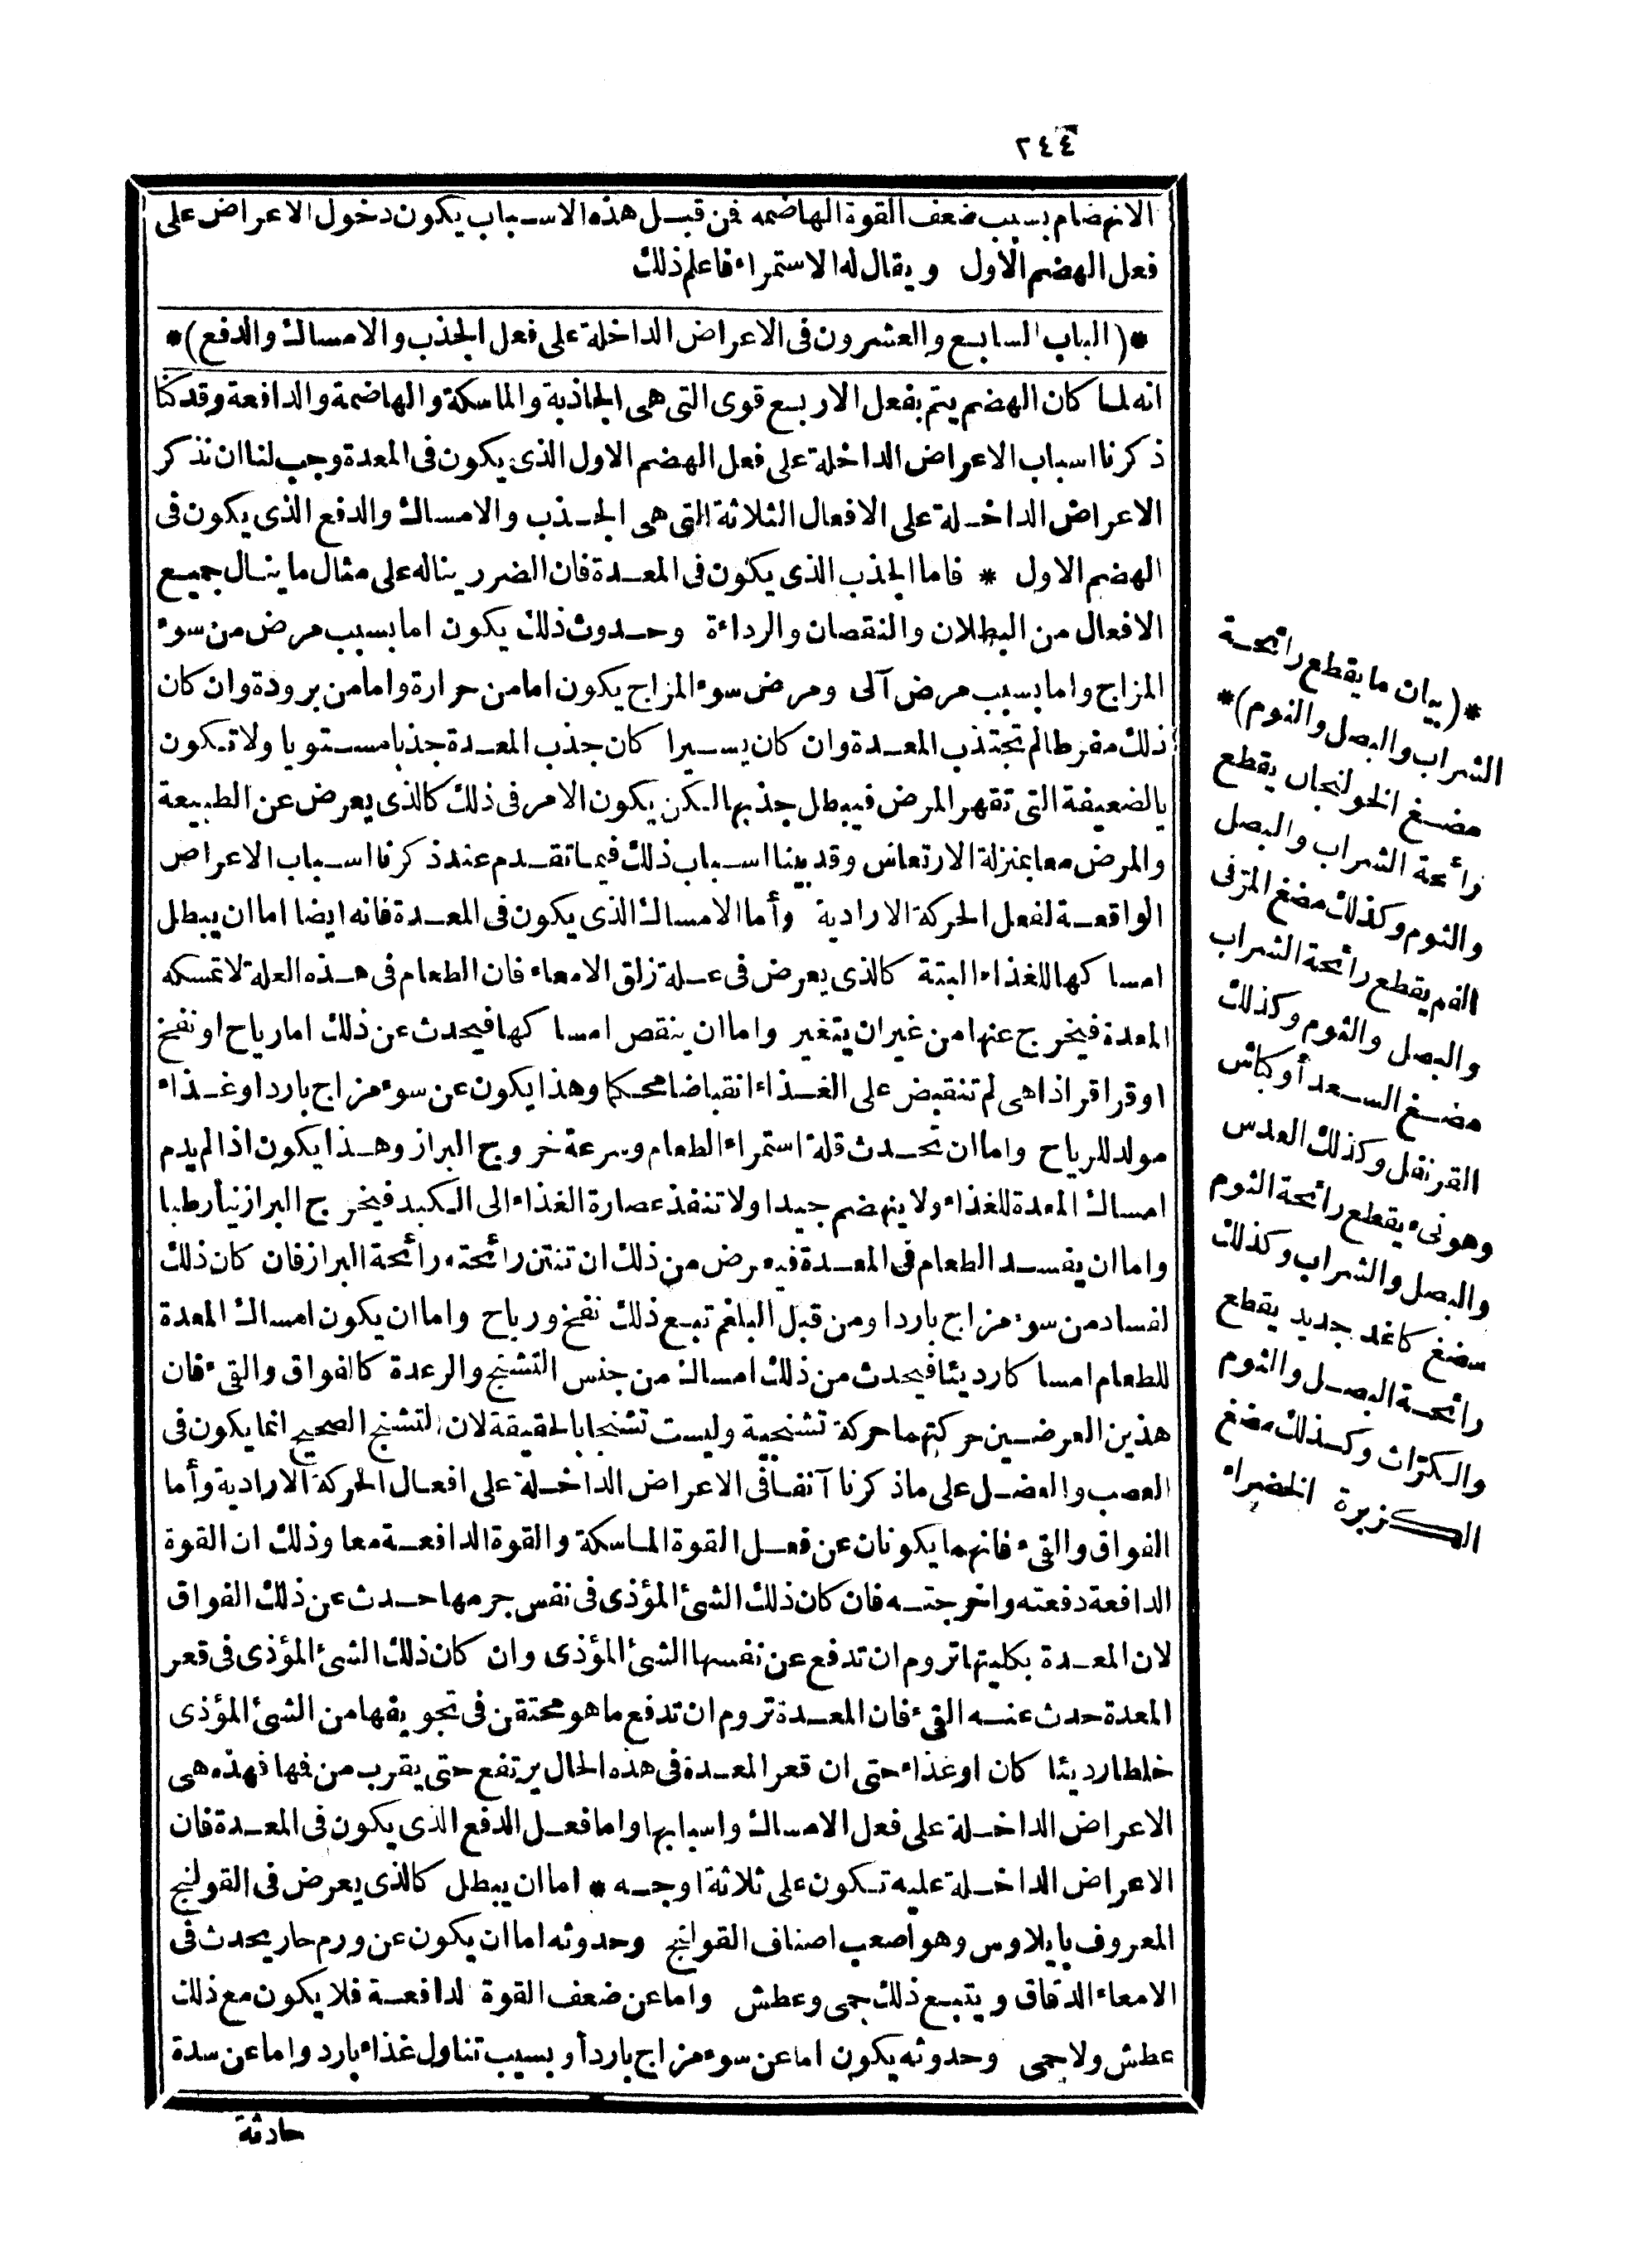 ٢٤٤
الانهضام بسبب ضعف القوة الهاضمه فن قبل هذه الاسباب يكون دخول الاعراض على
فعل الهضم الاول ويقال له الاستمراء فاعلم ذلك
*(الباب السابع والعشرون فى الاعراض الداخلة على فعل الجذب والامساك والدفع)*
انه لما كان الهضم يتم بفعل الاربع قوى التى هى الجاذبة والماسكة والهاضمة والدافعة وقد كنا
ذكرنا اسباب الاعراض الداخلة على فعل الهضم الاول الذى يكون فى المعدة وجب لنا ان نذكر
الاعراض الداخلة على الافعال الثلاثة التى هى الجذب والامساك والدفع الذى يكون فى
الهضم الاول * فاما الجذب الذى يكون فى المعدة فان الضرر يناله على مثال ما ينال جميع
الافعال من البطلان والنقصان والرداءة وحدوث ذلك يكون اما بسبب مرض من سوء
المزاج واما بسبب مرض آلى ومرض سوء المزاج يكون اما من حرارة واما من برودة وان كان
ذلك مفرطا لم تجتذب المعدة وان كان يسيرا كان جذب المعدة جذبا مستويا ولا تكون
بالضعيفة التى تقهر المرض فيبطل جذبها لكن يكون الامر فى ذلك كالذى يعرض عن الطبيعة
والمرض معا بمنزلة الارتعاش وقد بينا اسباب ذلك فيما تقدم عند ذكرنا اسباب الاعراض
الواقعة لفعل الحركة الارادية وأما الامساك الذى يكون فى المعدة فانه ايضا اما ان يبطل
امساكها للغذاء البتة كالذى يعرض فى علة زلق الامعاء فان الطعام فى هذه العلة لا تمسكه
المعدة فيخرج عنها من غير ان يتغير واما ان ينقص امساكها فيحدث عن ذلك اما رياح او نفخ
او قراقر اذا هى لم تنقبض على الغذاء انقباضا محكما وهذا يكون عن سوء مزاج بارد او غذاء
مولد للرياح واما ان تحدث قلة استمراء الطعام وسرعة خروج البراز وهذا يكون اذا لم يدم
امساك المعدة للغذاء ولا ينهضم جيدا ولا تنفذ عصارة الغذاء الى الكبد فيخرج البراز نيأ رطبا
واما ان يفسد الطعام فى المعدة فيعرض من ذلك ان تنتن رائحته رائحة البراز فان كان ذلك
لفساد من سوء مزاج بارد او من قبل البلغم تبع ذلك نفخ ورياح واما ان يكون امساك المعدة
للطعام امساكا رديئا فيحدث من ذلك امساك من جنس التشنج والرعدة كالفواق والقىء فان
هذين العرضين حركتهما حركة تشنجية وليست تشنجا بالحقيقة لان التشنج الصحيح انما يكون فى
العصب والعضل على ما ذكرنا آنفا فى الاعراض الداخلة على افعال الحركة الارادية وأما
الفواق والقىء فانهما يكونان عن فعل القوة الماسكة والقوة الدافعة معا وذلك ان القوة
الدافعة دفعته واخرجته فان كان ذلك الشئ المؤذى فى نفس جرمها حدث عن ذلك الفواق
لان المعدة بكليتها تروم ان تدفع عن نفسها الشئ المؤذى وان كان ذلك الشئ المؤذى فى قعر
المعدة حدث عنه القىء فان المعدة تروم ان تدفع ما هو محتقن فى تجويفها من الشئ المؤذى
خلطا رديئا كان او غذاء حتى ان قعر المعدة فى هذه الحال يرتفع حتى يقرب من فمها فهذه هى
الاعراض الداخلة على فعل الامساك واسبابها واما فعل الدفع الذى يكون فى المعدة فان
الاعراض الداخلة عليه تكون على ثلاثة اوجه * اما ان يبطل كالذى يعرض فى القولنج
المعروف بايلاوس وهو اصعب اصناف القوانج وحدوثه اما ان يكون عن ورم حار يحدث فى
الامعاء الدقاق ويتبع ذلك حمى وعطش واما عن ضعف القوة لدافعة فلا يكون مع ذلك
عطش ولا حمى وحدوثه يكون اما عن سوء مزاج بارد أو بسبب تناول غذاء بارد واما عن سدة
حادثة
*(بيان ما يقطع رائحة
الشراب والبصل والثوم)*
مضغ الخولنجان يقطع
رائحة الشراب والبصل
والثوم وكذلك مضغ المر فى
الفم يقطع رائحة الشراب
والبصل والثوم وكذلك
مضغ السعد أو كباش
القرنفل وكذلك العدس
وهو نىء يقطع رائحة الثوم
والبصل والشراب وكذلك
مضغ كاغد جديد يقطع
رائحة البصل والثوم
والكراث وكذلك مضغ
الكزبرة الخضراء